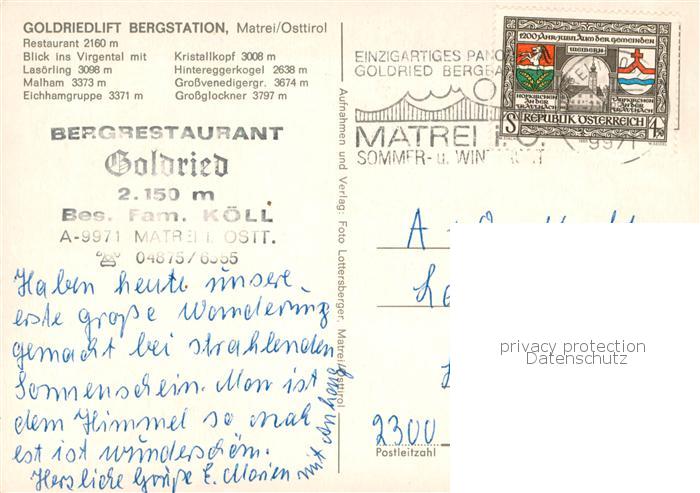 GOLDRIEDLIFT BERGSTATION, Matrei/Osttirol
Restaurant 2160 m
Blick ins Virgental mit Kristallkopf 3008 m
Lasörling 3098 m Hintereggerkogel 2638 m
Malham 3373 m Großvenedigergr. 3674 m
Eichhamgruppe 3371 m Großglockner 3797 m
BERGRESTAURANT
Goldried
2.150 m
Bes. Fam. KÖLL
A-9971 MATREI i. OSTT.
☎ 04875/6565
Haben heute unsere
erste große Wanderung
gemacht bei strahlenden
Sonnenschein. Man ist
dem Himmel so nah
est ist wunderschön.
Herzliche Grüße E. Marien
mit Anhang
Aufnahmen und Verlag: Foto Lottersberger, Matrei/Osttirol
EINZIGARTIGES PANO
GOLDRIED BERGBA
MATREI i.O.
SOMMER- u. WINT
9971
1200 JAHR-JUBILÄUM DER GEMEINDEN
WEIBERN
HOFKIRCHEN
AN DER
TRATTNACH
TAUFKIRCHEN
AN DER
TRATTNACH
S REPUBLIK ÖSTERREICH 4.50
A
2300
Postleitzahl
privacy protection
Datenschutz